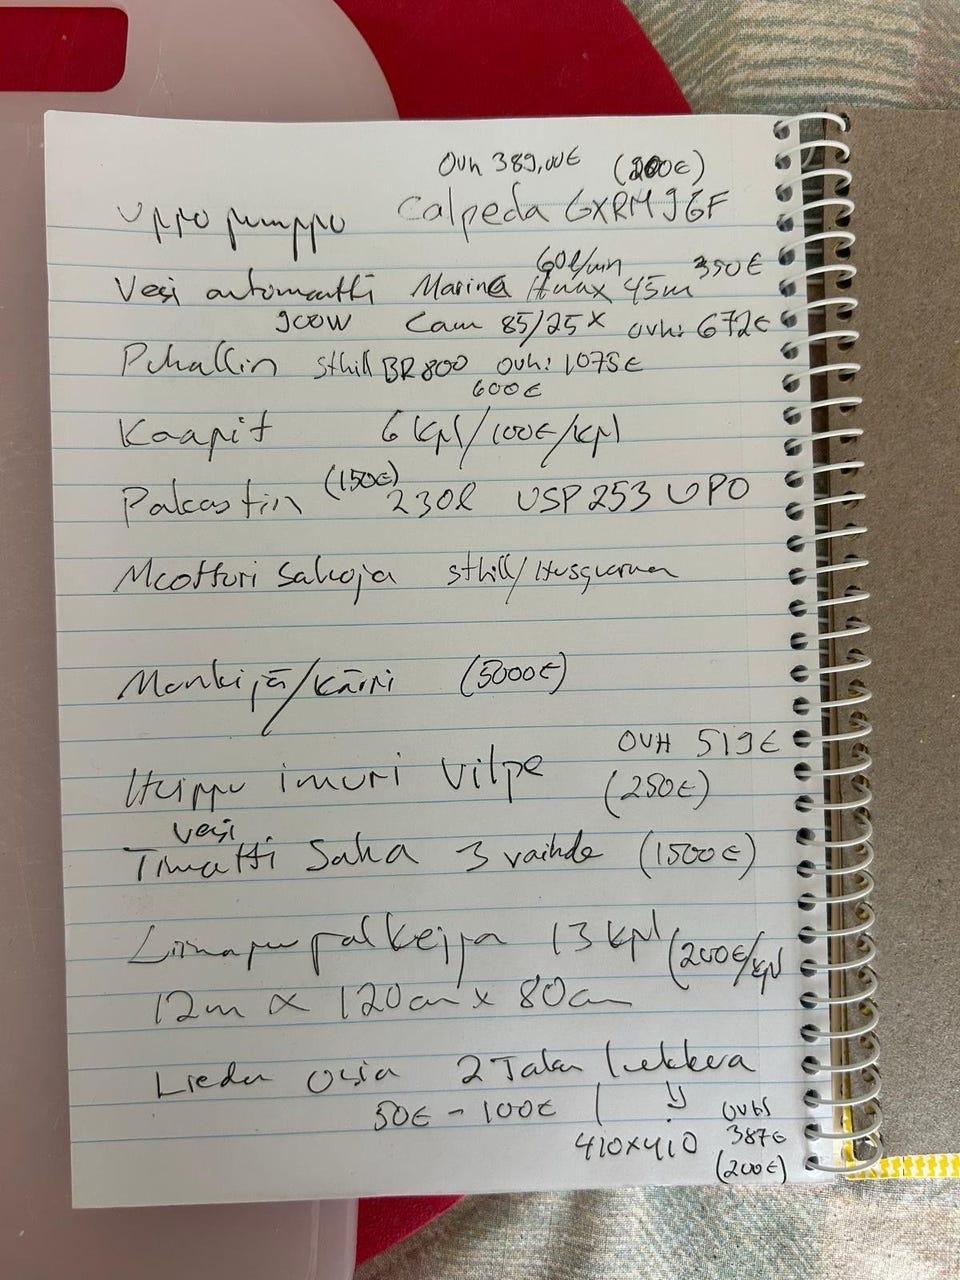 Ovh 389,00€ (200€)
Uppo pumppo Calpeda GXRM 9GF
60l/min 350€
Vesi automatti Marina Hmax 45m
900W Cam 85/25 x ovh: 672€
Puhallin sthill BR800 ovh: 1075€
600€
Kaapit 6 kpl/100€/kpl
(150€)
Pakastin 230l USP 253 UPO
Moottori Sahoja sthill/Husqvarna
Mönkijä/Kärri (5000€)
OVH 519€
Huippu imuri Vilpe (250€)
vesi
Timatti Saha 3 vaihde (1500€)
Liimapu palkejja 13 kpl (200€/kpl
12m x 120cm x 80cm
Lieden Osia 2 Talon
50€ - 100€
410x410 387€
(200€)